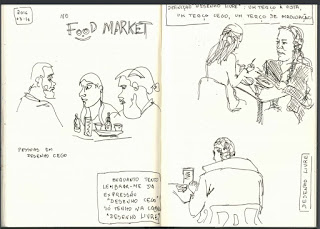 NO
FOOD MARKET
PESSOAS EM
DESENHO CEGO
ENQUANTO TENTO
LEMBRAR-ME DA
EXPRESSÃO
"DESENHO CEGO"
SÓ TENHO NA CABEÇA
"DESENHO LIVRE"
DEFINIÇÃO DESENHO LIVRE: UM TERÇO À VISTA,
UM TERÇO CEGO, UM TERÇO DE IMAGINAÇÃO
DESENHO LIVRE